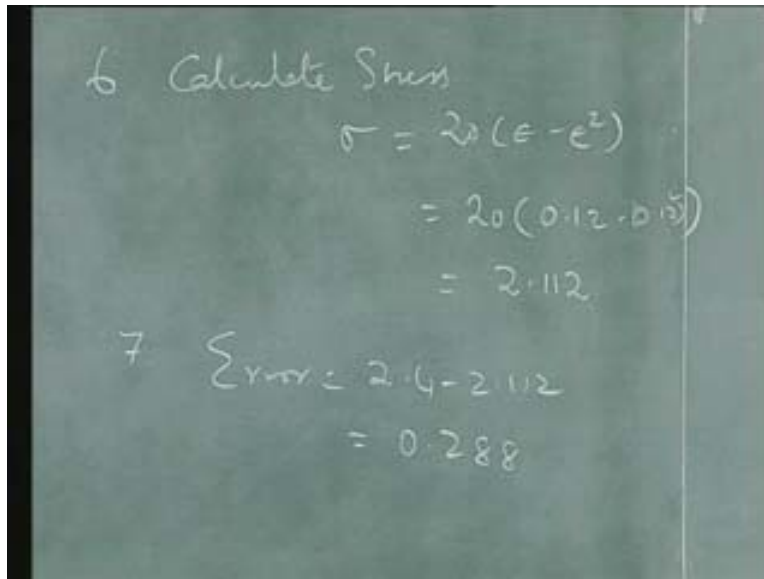 6 Calculate Stress
σ = 20(ε - ε²)
= 20(0.12 - 0.12²)
= 2.112
7 Error = 2.4 - 2.112
= 0.288